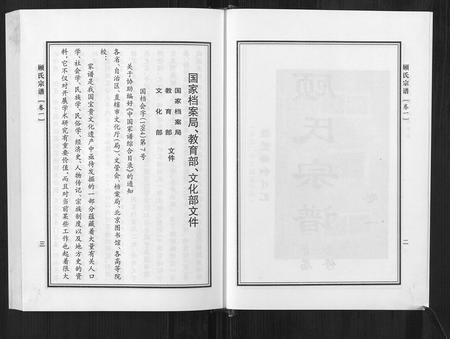 顾氏宗谱〔卷一〕
二
国家档案局、教育部、文化部文件
国家档案局
教育部 文件
文化部
国档会字(1984)第7号
关于协助编好《中国家谱综合目录》的通知
各省、自治区、直辖市文化厅(局)、文管会、档案局、北京图书馆、各高等院
校:
家谱是我国宝贵文化遗产中亟待发掘的一部分蕴藏着大量有关人口
学、社会学、民族学、民俗学、经济史、人物传记、宗族制度以及地方史的资
料,它不仅对开展学术研究有重要价值,而且对当前某些工作也起着很大
顾氏宗谱〔卷一〕
三